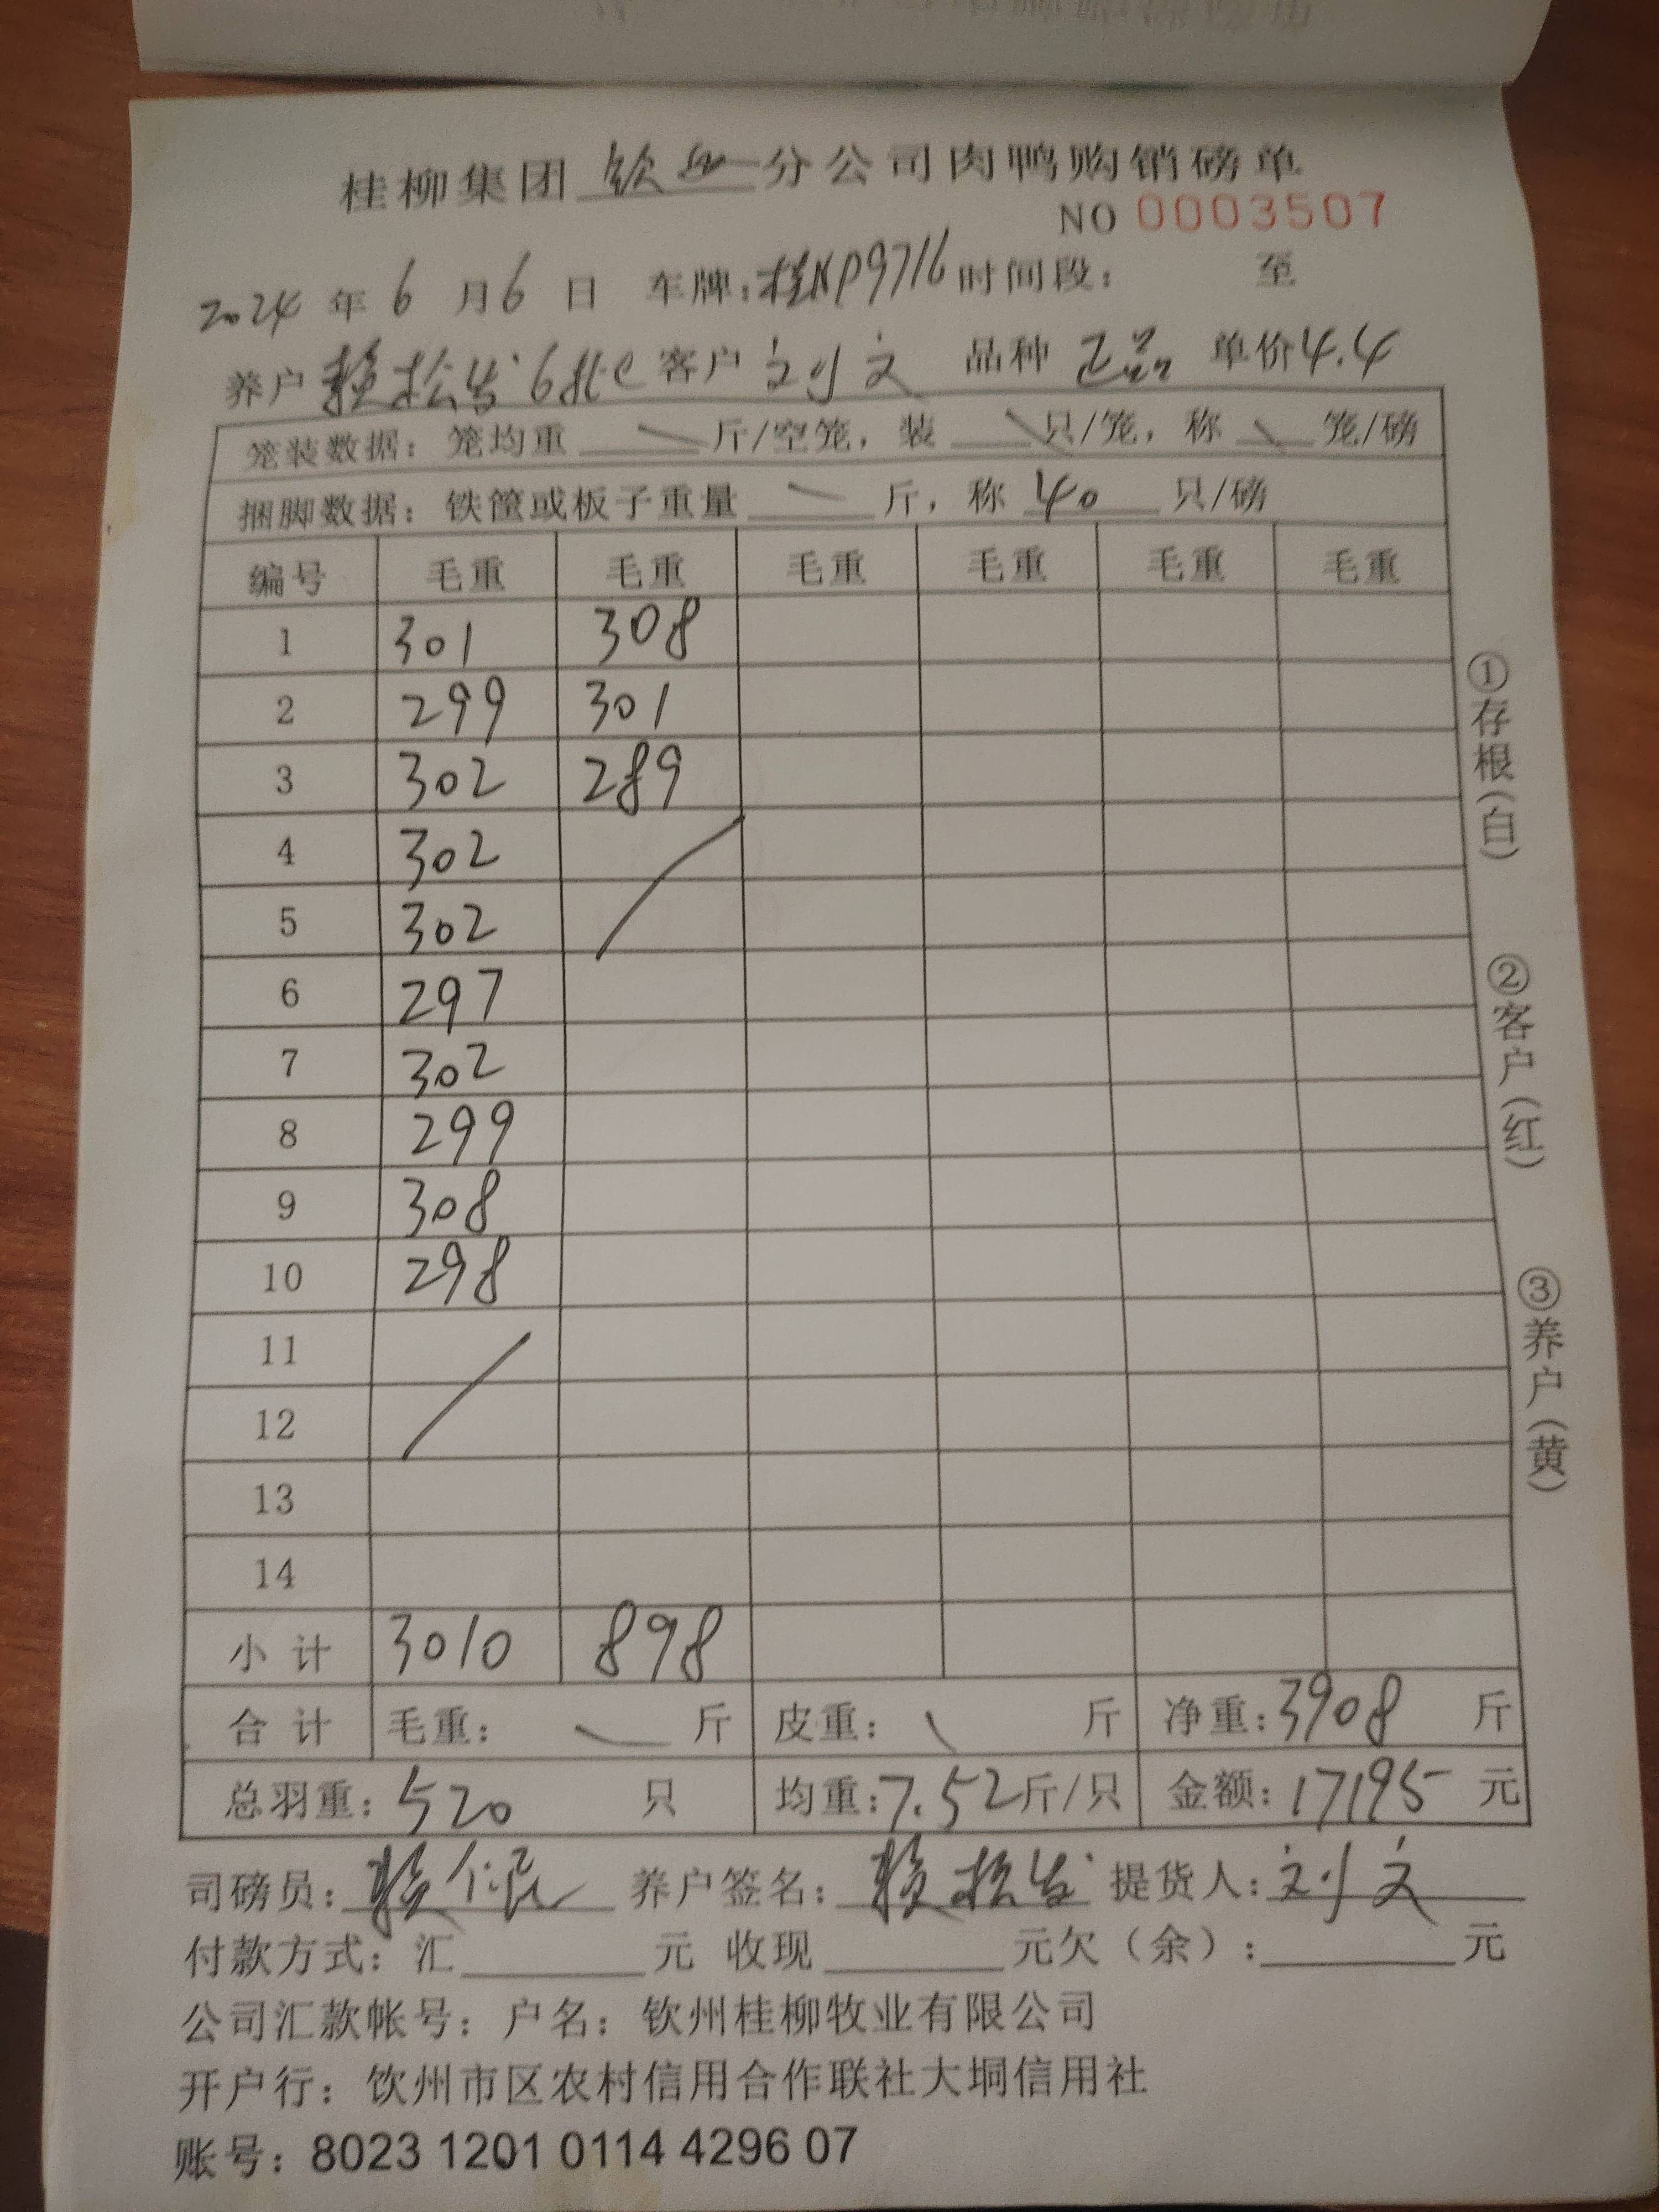 桂柳集团 钦州 分公司肉鸭购销磅单
NO 0003507
2024 年 6 月 6 日 车牌:桂NP9716 时间段: 至
养户 赖松发 6批 客户 刘文 品种 正品 单价4.4
笼装数据: 笼均重 \ 斤/空笼, 装 \ 只/笼, 称 \ 笼/磅
捆脚数据: 铁筐或板子重量 \ 斤, 称 40 只/磅
编号 毛重 毛重 毛重 毛重 毛重 毛重
1 301 308
2 299 301
3 302 289
4 302
5 302
6 297
7 302
8 299
9 308
10 298
11
12
13
14
小 计 3010 898
合 计 毛重: \ 斤 皮重: \ 斤 净重:3908 斤
总羽重: 520 只 均重:7.52斤/只 金额:17195 元
司磅员: 养户签名: 赖松发 提货人:刘文
付款方式: 汇 元 收现 元欠(余): 元
公司汇款帐号: 户名: 钦州桂柳牧业有限公司
开户行: 钦州市区农村信用合作联社大垌信用社
账号: 8023 1201 0114 4296 07
①存根(白)
②客户(红)
③养户(黄)